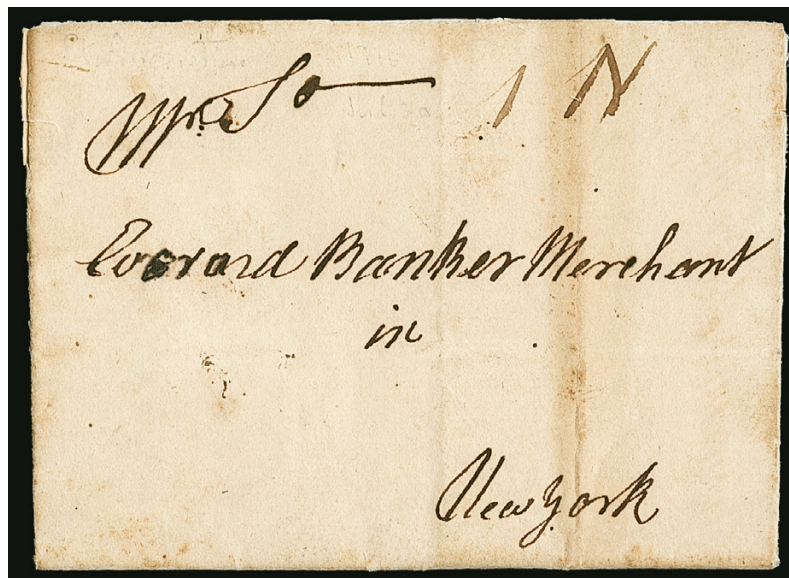 Mr. To 1 N
Everard Banker Merchant
in
New york